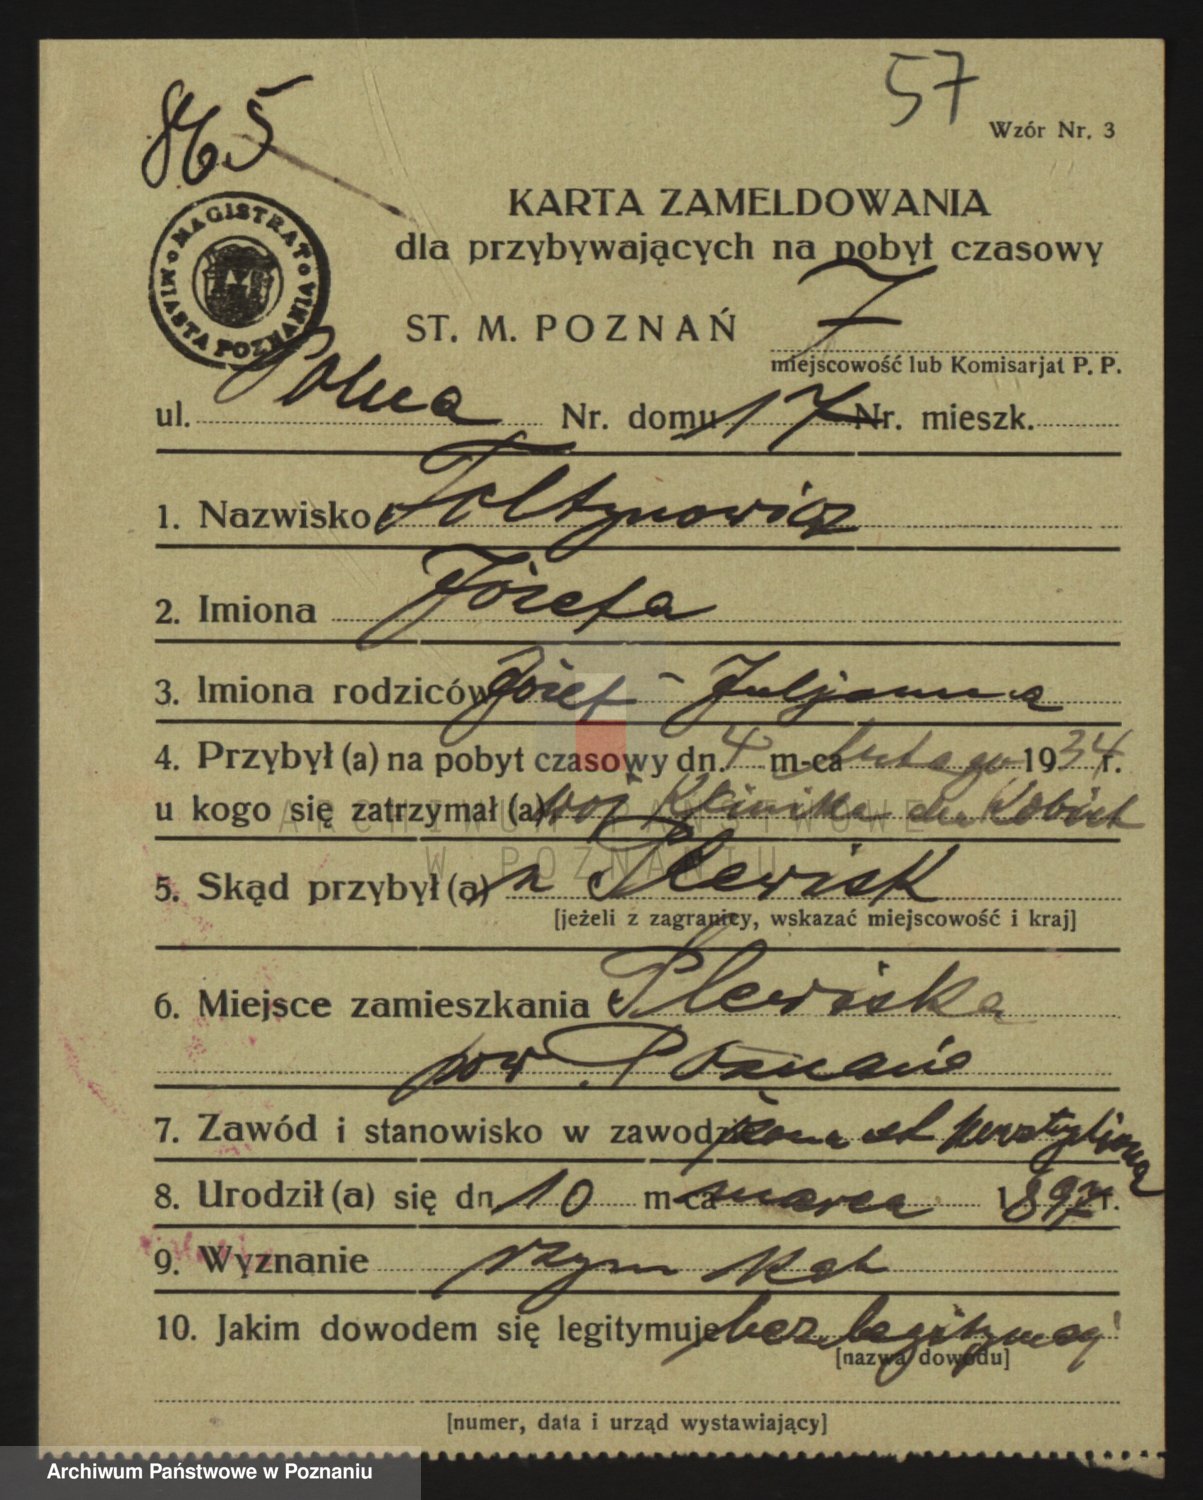 57
865
Wzór Nr. 3
MAGISTRAT MIASTA POZNANIA
KARTA ZAMELDOWANIA
dla przybywających na pobyt czasowy
ST. M. POZNAŃ 7
miejscowość lub Komisarjat P. P.
ul. Polna Nr. domu 17 Nr. mieszk.
1. Nazwisko Foltynowicz
2. Imiona Józefa
3. Imiona rodziców Józef - Juljanna
4. Przybył (a) na pobyt czasowy dn. 4 m-ca lutego 1934 r.
u kogo się zatrzymał (a) woj Klinika dla Kobiet
5. Skąd przybył (a) z Plewisk
[jeżeli z zagranicy, wskazać miejscowość i kraj]
6. Miejsce zamieszkania Plewiska
pow Poznanie
7. Zawód i stanowisko w zawodzie żona
8. Urodził (a) się dn. 10 m-ca marca 1897 r.
9. Wyznanie rzym kat
10. Jakim dowodem się legitymuje bez legitymacji
[nazwa dowodu]
[numer, data i urząd wystawiający]
ARCHIWUM PAŃSTWOWE
W POZNANIU
Archiwum Państwowe w Poznaniu